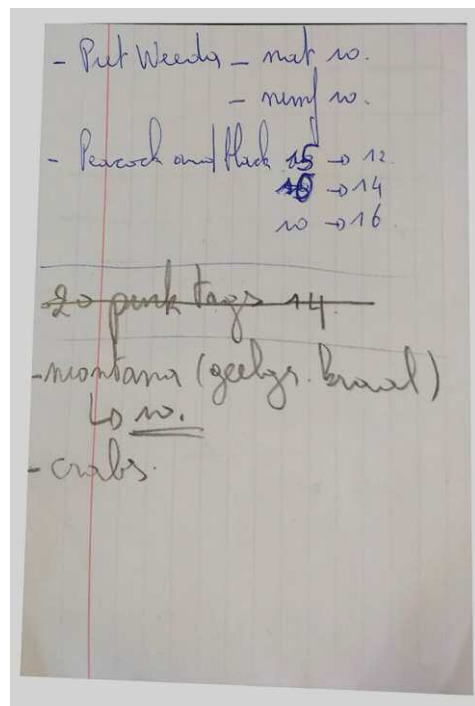 - Put Weeds - nat 10.
- nymf 10.
- Peacock and black 15 → 12
10 → 14
10 → 16
20 pink tags 14.
- montana (
↳ 10.
- crabs.